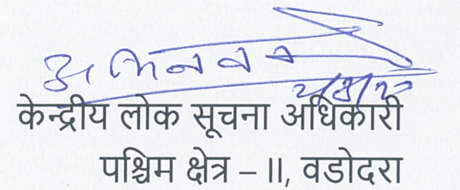 अभिनव
केन्द्रीय लोक सूचना अधिकारी
पश्चिम क्षेत्र – II, वडोदरा